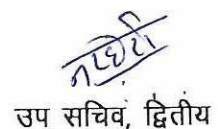 उप सचिव, द्वितीय